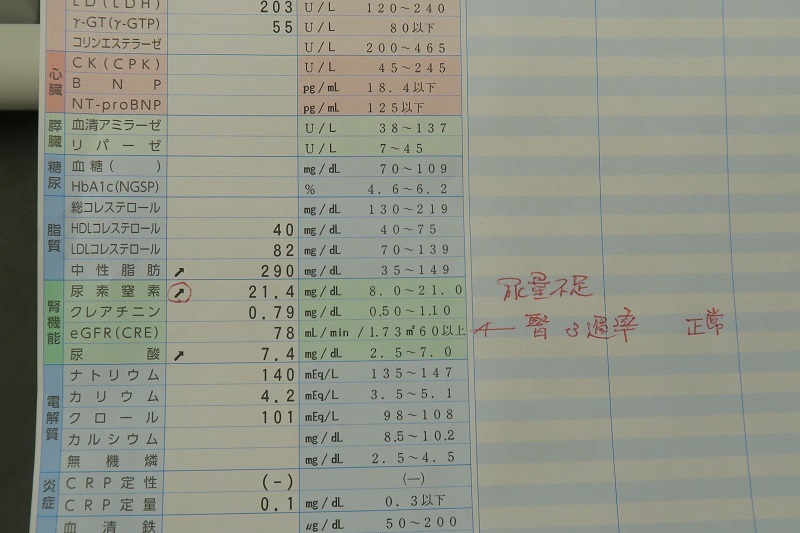 LD(LDH) 203 U/L 120～240
γ-GT(γ-GTP) 55 U/L 80以下
コリンエステラーゼ U/L 200～465
心臓
CK(CPK) U/L 45～245
BNP pg/mL 18.4以下
NT-proBNP pg/mL 125以下
膵臓
血清アミラーゼ U/L 38～137
リパーゼ U/L 7～45
糖尿
血糖( ) mg/dL 70～109
HbA1c(NGSP) % 4.6～6.2
脂質
総コレステロール mg/dL 130～219
HDLコレステロール 40 mg/dL 40～75
LDLコレステロール 82 mg/dL 70～139
中性脂肪 ➚ 290 mg/dL 35～149
腎機能
尿素窒素 ➚ 21.4 mg/dL 8.0～21.0 尿量不足
クレアチニン 0.79 mg/dL 0.50～1.10
eGFR(CRE) 78 mL/min/1.73㎡60以上 ← 腎ろ過率 正常
尿酸 ➚ 7.4 mg/dL 2.5～7.0
電解質
ナトリウム 140 mEq/L 135～147
カリウム 4.2 mEq/L 3.5～5.1
クロール 101 mEq/L 98～108
カルシウム mg/dL 8.5～10.2
無機燐 mg/dL 2.5～4.5
炎症
CRP定性 (-) (―)
CRP定量 0.1 mg/dL 0.3以下
血清鉄 μg/dL 50～200